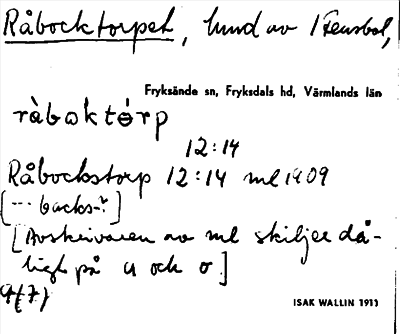 Råbocktorpet, lund av Stensbol,
Fryksände sn, Fryksdals hd, Värmlands län
ràbɷktórp
12:14
Råbockstorp 12:14 ml 1909
[--- backs-?]
[Avskrivaren av ml skiljer då-
ligt på a och o.]
ISAK WALLIN 1911